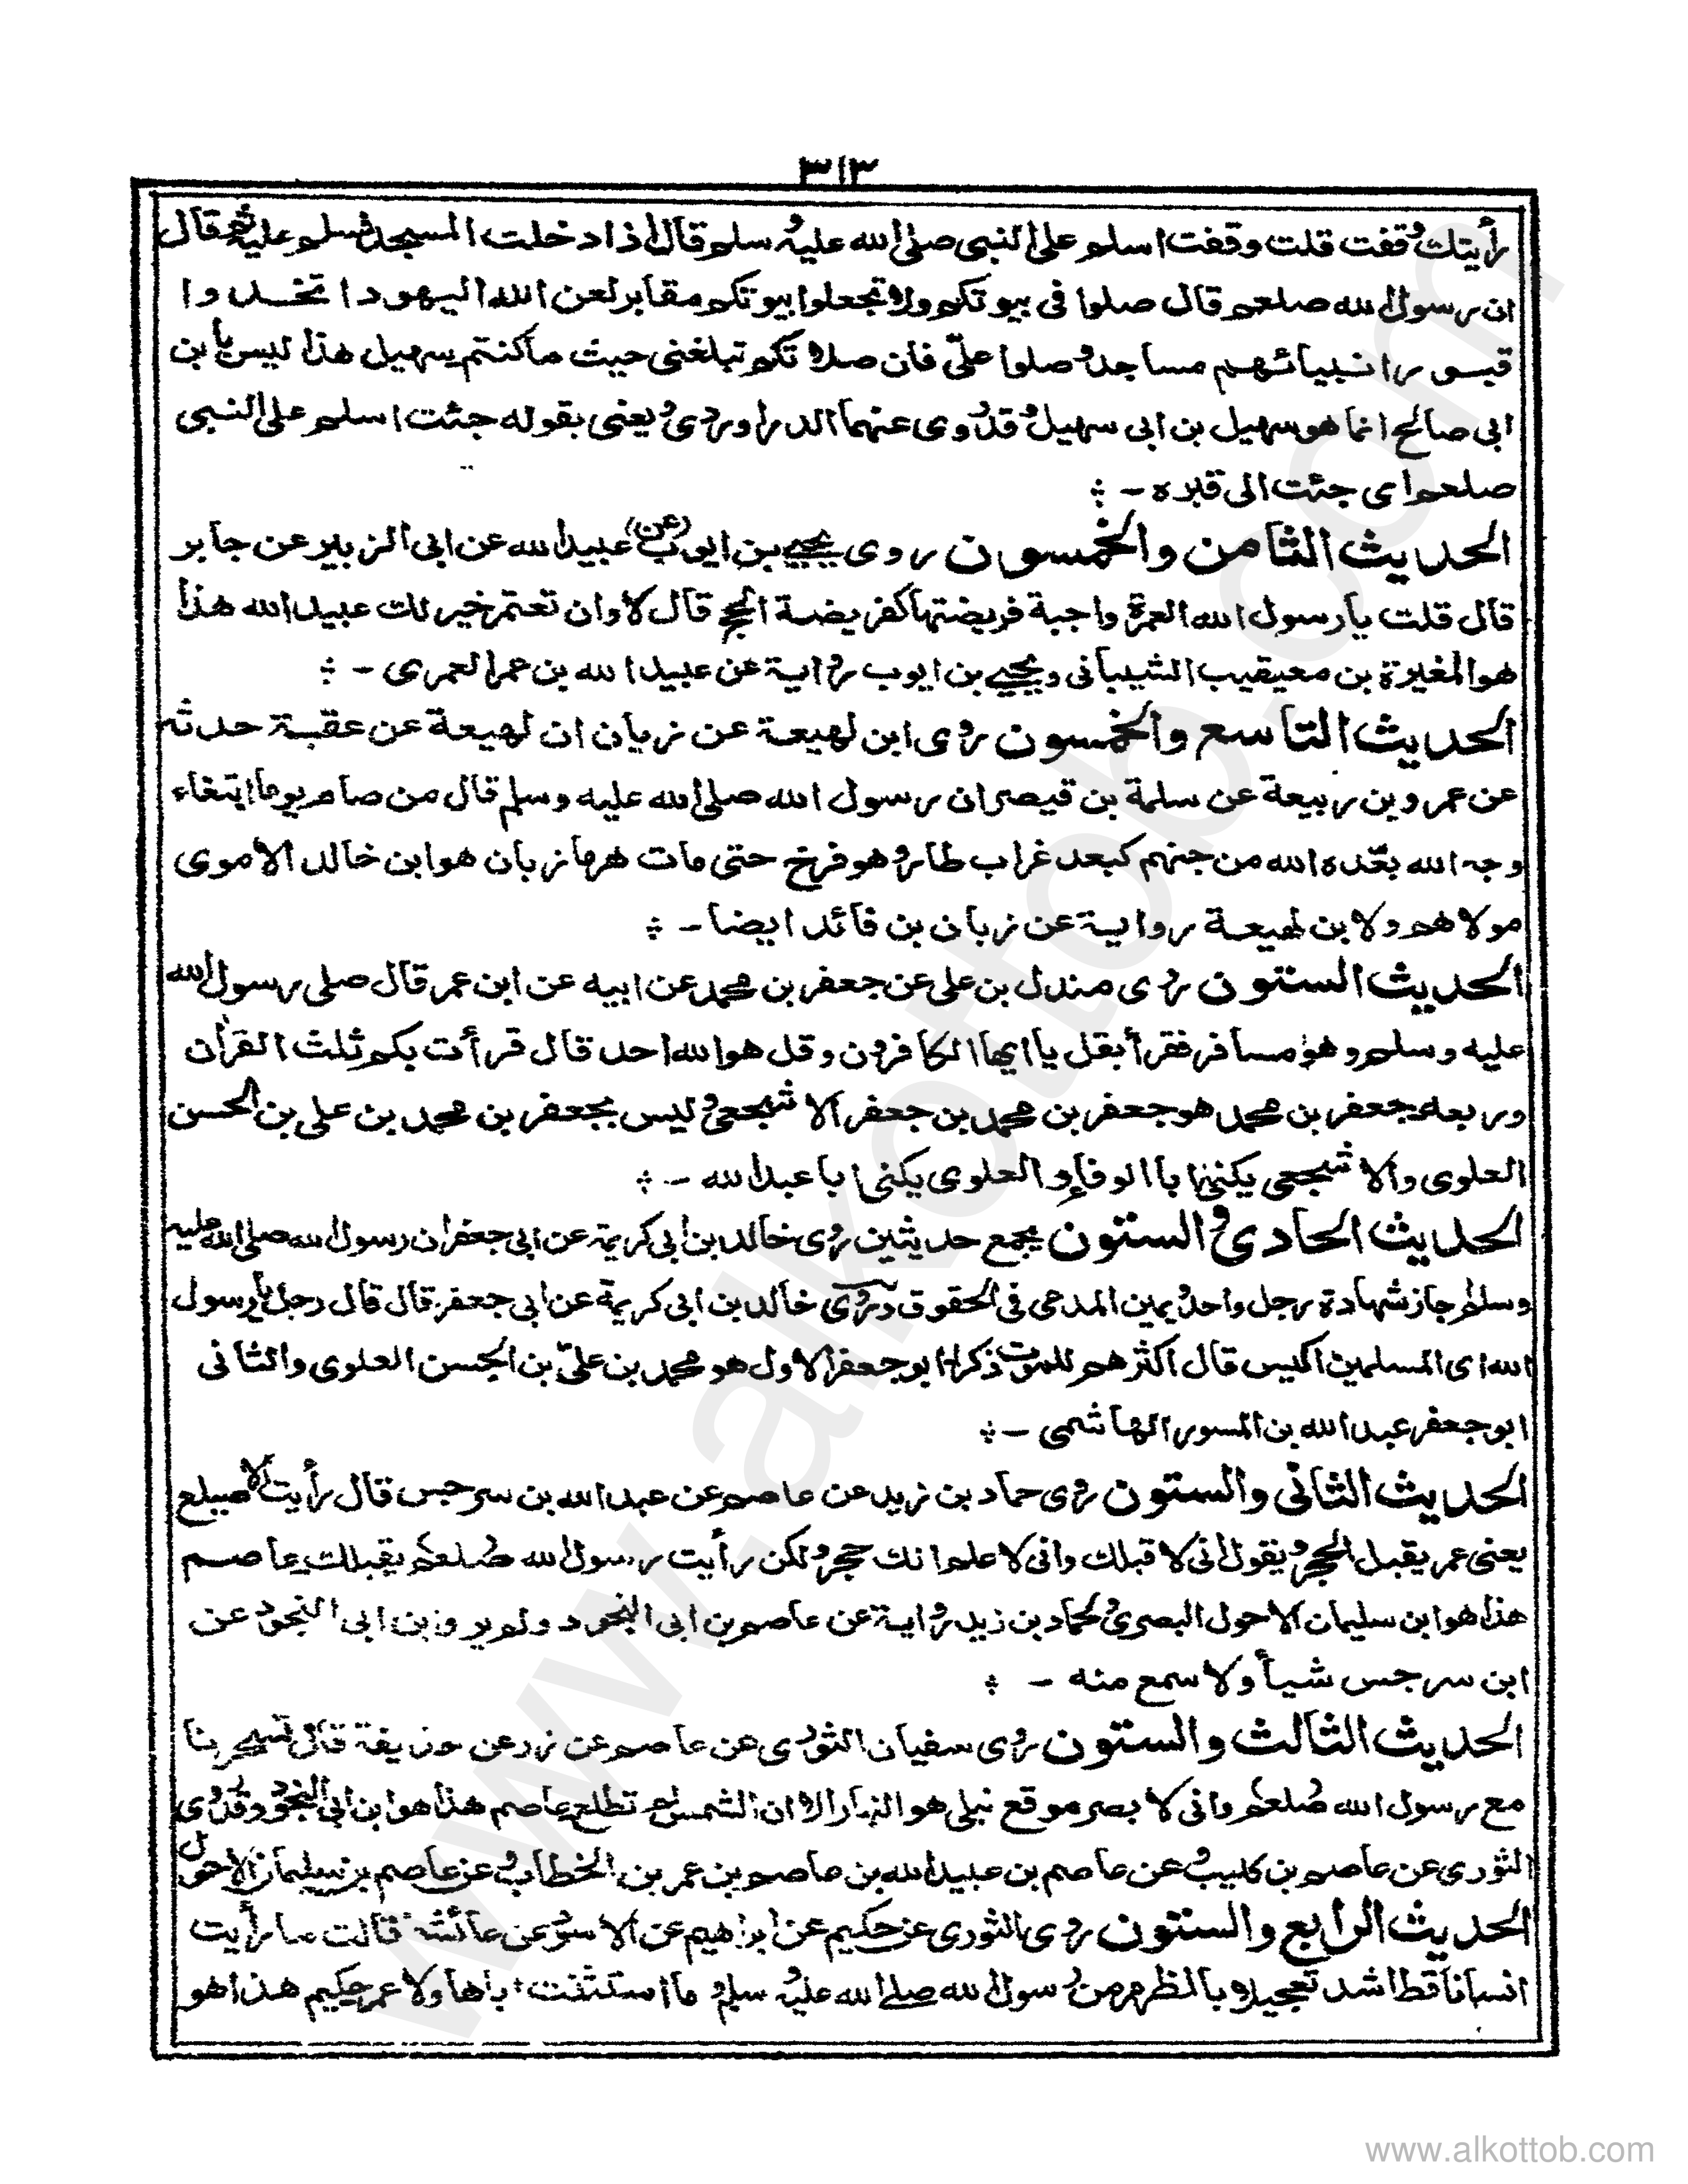 ٣١٣
رأيتك وقفت قلت وقفت اسلم على النبى صلى الله عليه وسلم قال اذا دخلت المسجد فسلم عليه ثم قال
ان رسول الله صلعم قال صلوا فى بيوتكم ولا تجعلوا بيوتكم مقابر لعن الله اليهود اتخذوا
قبور انبيائهم مساجد وصلوا علىّ فان صلاتكم تبلغنى حيث ما كنتم سهيل هذا ليس بابن
ابى صالح انما هو سهيل بن ابى سهيل وقد روى عنهما الدراوردى ويعنى بقوله جئت اسلم على النبى
صلعم اى جئت الى قبره -
الحديث الثامن والخمسون روى يحيى بن ايوب (عن) عبيد الله عن ابى الزبير عن جابر
قال قلت يا رسول الله العمرة واجبة فريضتها كفريضة الحج قال لا وان تعتمر خير لك عبيد الله هذا
هو المغيرة بن معيقيب الشيبانى ويحيى بن ايوب رواية عن عبيد الله بن عمر العمرى -
الحديث التاسع والخمسون روى ابن لهيعة عن زبان ان لهيعة عن عقبة حدثه
عن عمرو بن ربيعة عن سلمة بن قيصر ان رسول الله صلى الله عليه وسلم قال من صام يوما ابتغاء
وجه الله بعّده الله من جهنم كبعد غراب طار وهو فرخ حتى مات هرما زبان هو ابن خالد الاموى
مولاهم ولابن لهيعة رواية عن زبان بن فائد ايضا -
الحديث الستون روى مندل بن على عن جعفر بن محمد عن ابيه عن ابن عمر قال صلى رسول الله
عليه وسلم وهو مسافر فقرأ بقل يا ايها الكافرون وقل هو الله احد قال قرأت بكم ثلث القرآن
وربعه جعفر بن محمد هو جعفر بن محمد بن جعفر الاشجعى وليس بجعفر بن محمد بن على بن الحسن
العلوى والاشجعى يكنى ابا الوفاء والعلوى يكنى ابا عبد الله -
الحديث الحادى والستون يجمع حديثين روى خالد بن ابى كريمة عن ابى جعفر ان رسول الله صلى الله عليه
وسلم جاز شهادة رجل واحد ويمين المدعى فى الحقوق وروى خالد بن ابى كريمة عن ابى جعفر قال قال رجل يا رسول
الله اى المسلمين اكيس قال اكثرهم للموت ذكرا ابو جعفر الاول هو محمد بن علىّ بن الحسن العلوى والثانى
ابو جعفر عبد الله بن المسور الهاشمى -
الحديث الثانى والستون روى حماد بن زيد عن عاصم عن عبد الله بن سرجس قال رأيت الاصيلع
يعنى عمر يقبل الحجر ويقول انى لاقبلك وانى لاعلم انك حجر ولكن رأيت رسول الله صلعم يقبلك عاصم
هذا هو ابن سليمان الاحول البصرى ولحماد بن زيد رواية عن عاصم بن ابى النجود ولم يرو بن ابى النجود عن
ابن سرجس شيأ ولا سمع منه -
الحديث الثالث والستون روى سفيان الثورى عن عاصم عن زر عن حذيفة قال تسحرنا
مع رسول الله صلعم وانى لابصر موقع نبلى هو النهار الا ان الشمس لم تطلع عاصم هذا هو ابن ابى النجود وقد روى
الثورى عن عاصم بن كليب وعن عاصم بن عبيد الله بن عاصم بن عمر بن الخطاب وعن عاصم بن سليمان الاحول
الحديث الرابع والستون روى الثورى عن حكيم عن ابراهيم عن الاسود عن عائشة قالت ما رأيت
انسانا قط اشد تعجيلا بالظهر من رسول الله صلى الله عليه وسلم ما استثنت اباها ولا عمر حكيم هذا هو
www.alkottob.com
www.alkottob.com